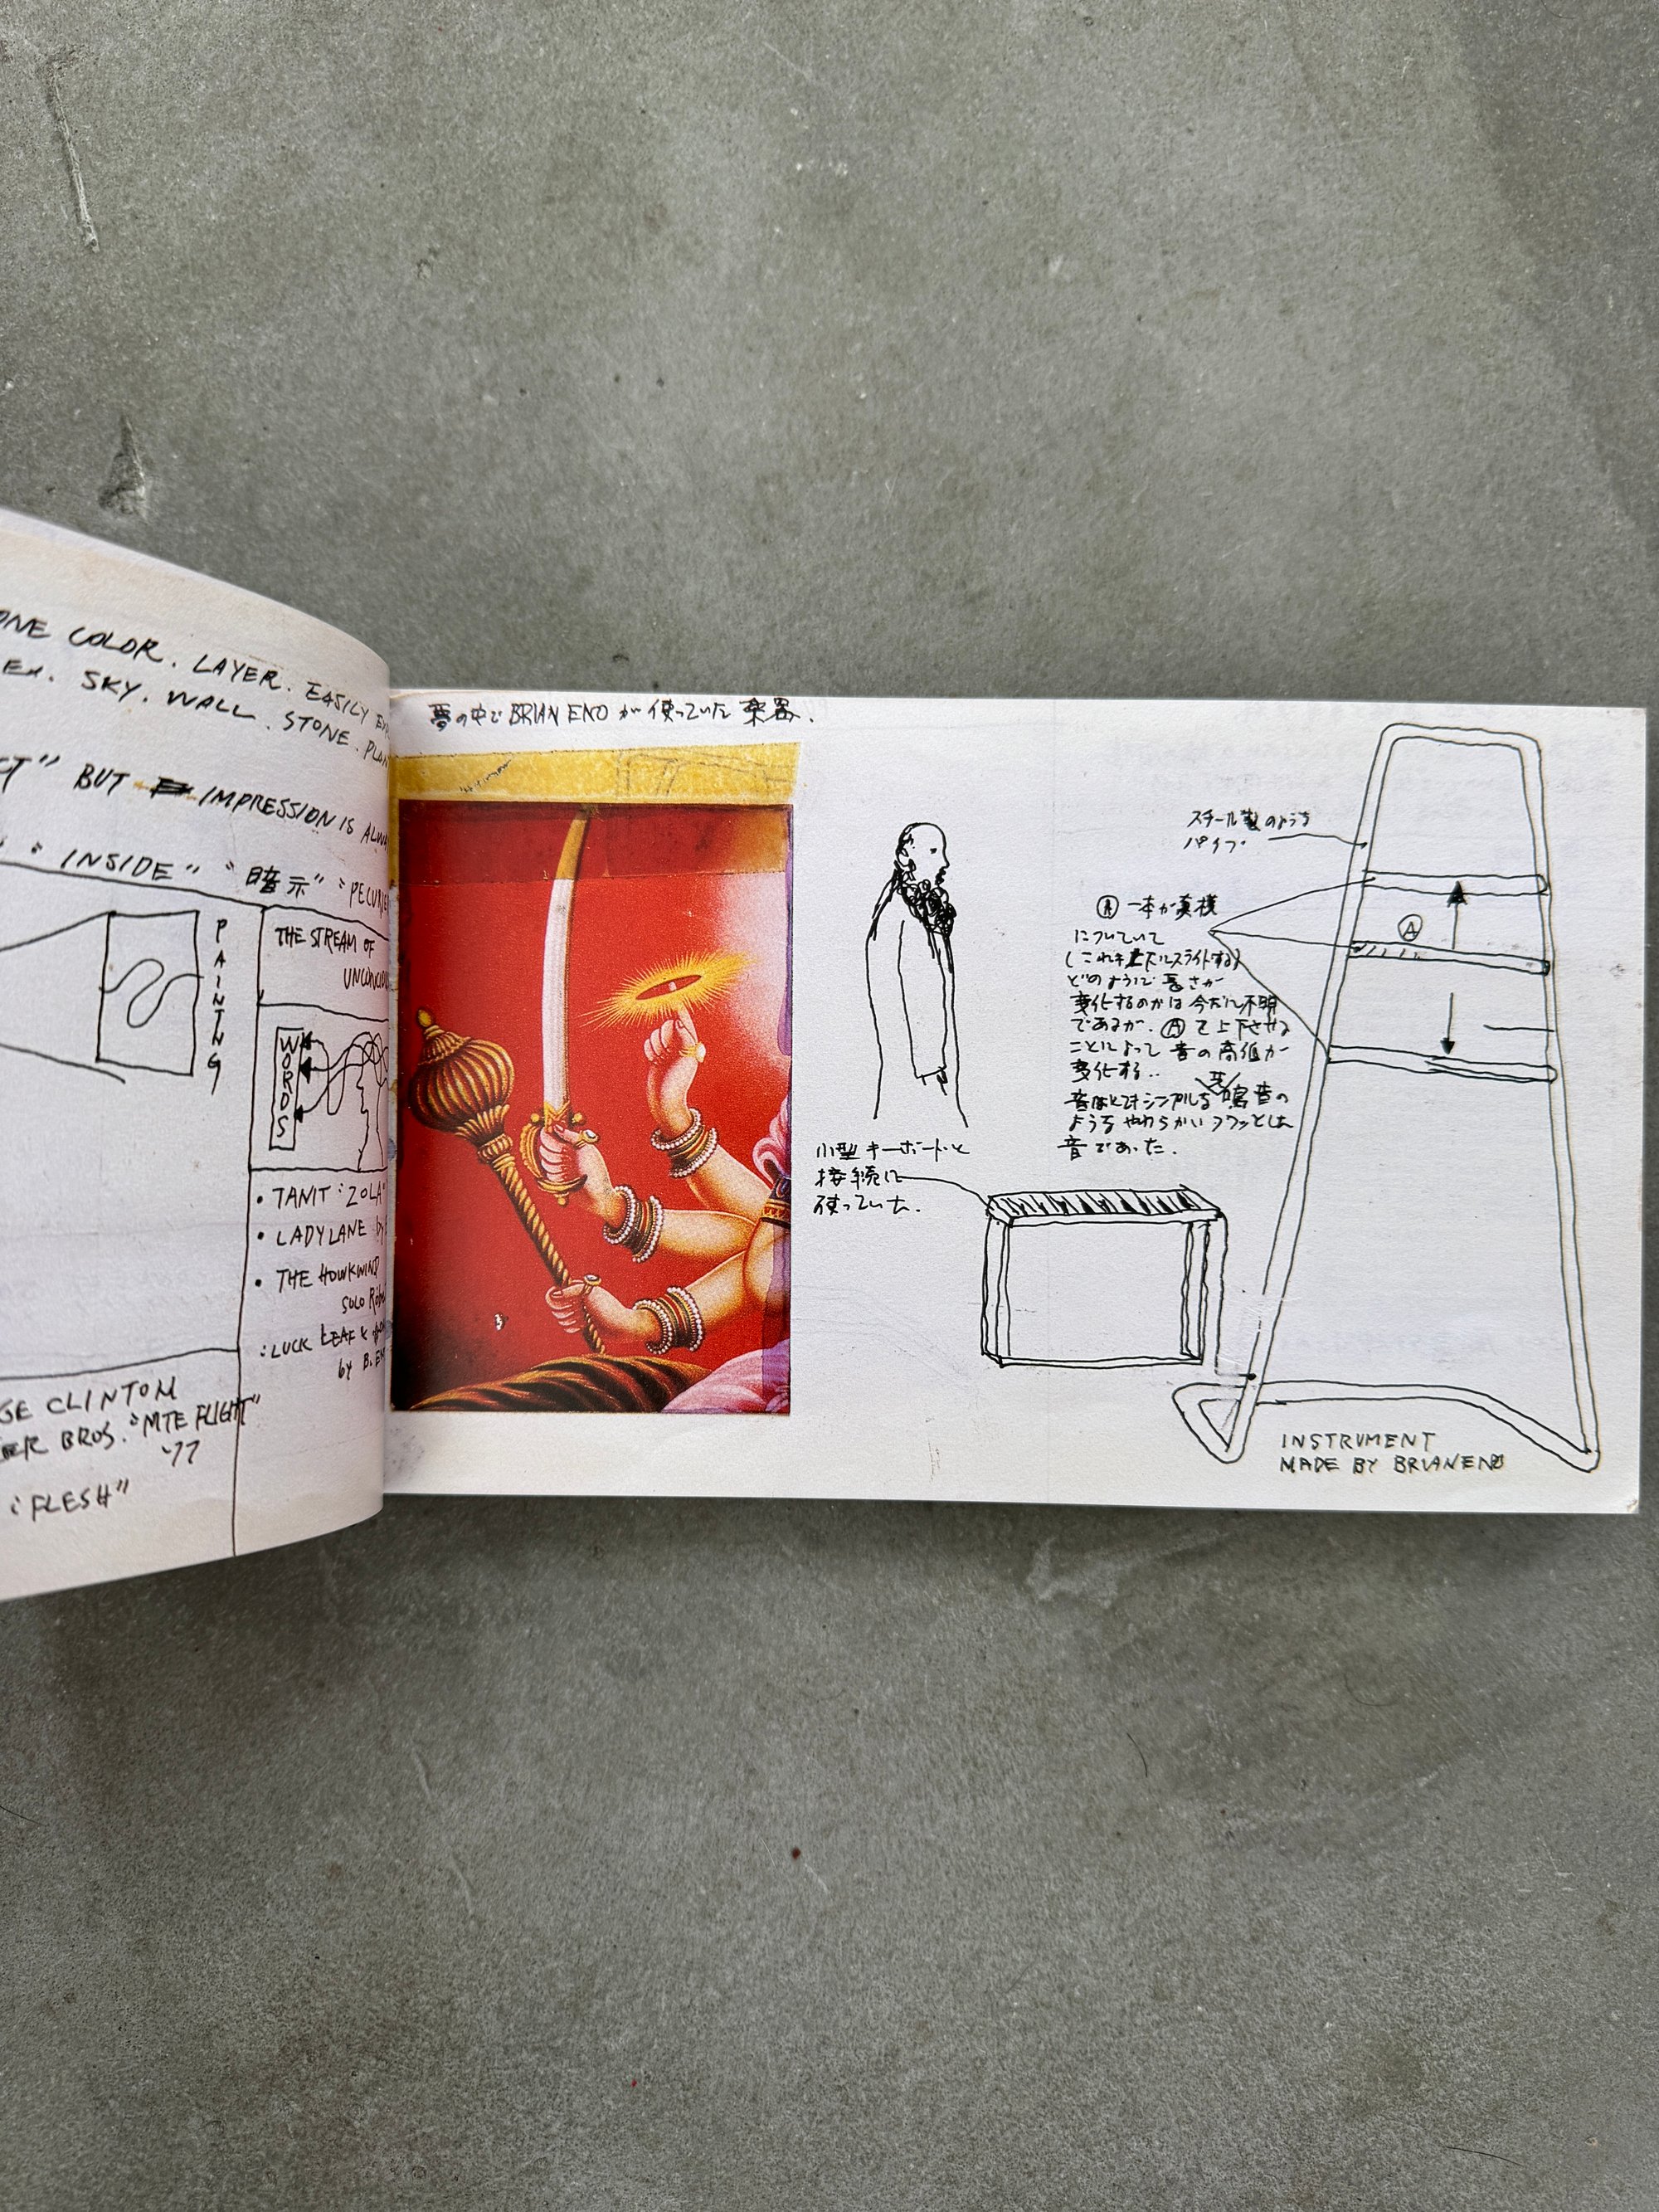 ONE COLOR. LAYER. EASILY
EX. SKY. WALL. STONE.
" BUT IMPRESSION IS
"INSIDE" "暗示"
PAINTING
THE STREAM OF
WORDS
• TANIT "ZOLA"
• LADY LANE by
• THE HOWKWIND
SOLO
: LUCK LEAF &
by B.
CLINTON
BROS. "MTE FLIGHT"
'77
"FLESH"
夢の中で BRIAN ENO が使っていた楽器.
スチール製のような
パイプ
Ⓐ 一本が真横
についていて
(これを上下にスライドする)
どのようにで長さが
変化するのかは今だに不明
であるが、Ⓐを上下させる
ことによって音の高低が
変化する..
音はとてもシンプルな 音の
ようなやわらかいフワッとした
音であった.
小型キーボードと
接続して
使っていた.
Ⓐ
INSTRUMENT
MADE BY BRIAN ENO